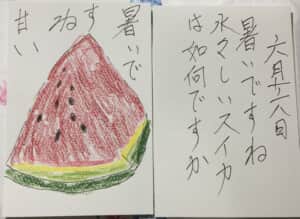 六月廿八日
暑いですね
水々しいスイカ
は如何ですか
暑いで
すね
甘い